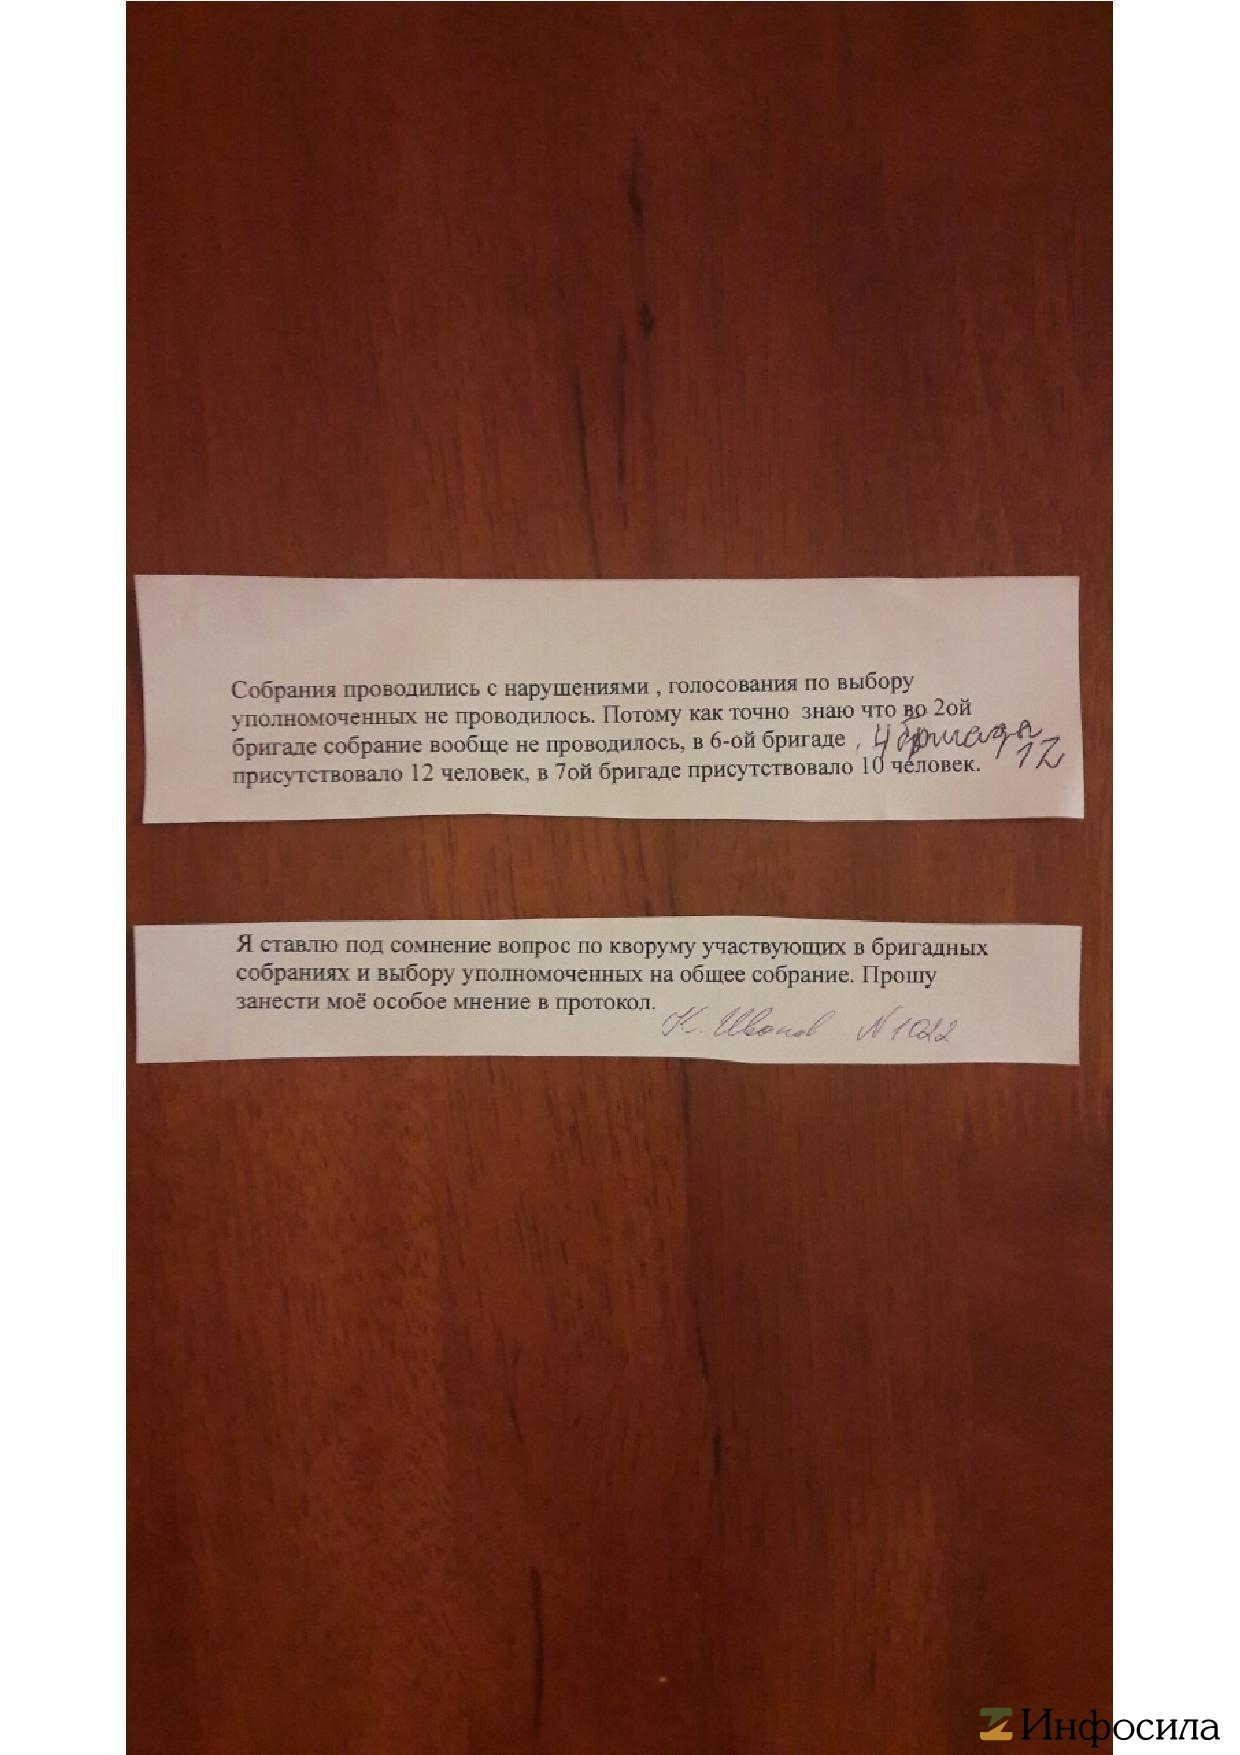 Собрания проводились с нарушениями , голосования по выбору
уполномоченных не проводилось. Потому как точно знаю что во 2ой
бригаде собрание вообще не проводилось, в 6-ой бригаде , 4 бригада
12
присутствовало 12 человек, в 7ой бригаде присутствовало 10 человек.
Я ставлю под сомнение вопрос по кворуму участвующих в бригадных
собраниях и выбору уполномоченных на общее собрание. Прошу
занести моё особое мнение в протокол.
К. Иванов N 1022
Инфосила